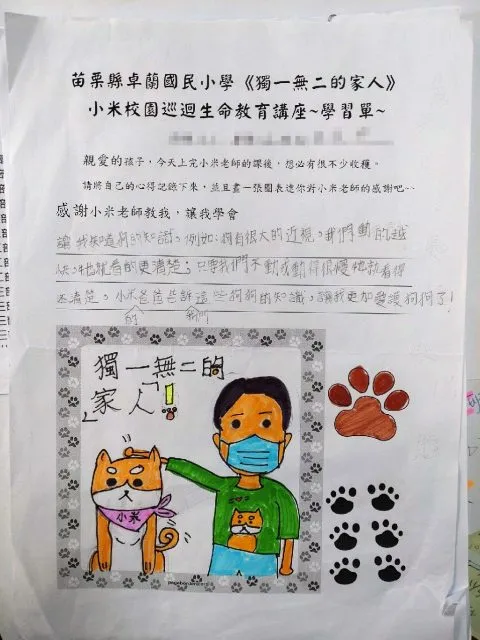 苗栗縣卓蘭國民小學《獨一無二的家人》
小米校園巡迴生命教育講座~學習單~
親愛的孩子，今天上完小米老師的課後，想必有很不少收穫。
請將自己的心得記錄下來，並且畫一張圖表達你對小米老師的感謝吧~~
感謝小米老師教我，讓我學會
讓我知道狗的知識。例如：狗有很大的近視。我們動的越
快，牠就看的更清楚；只要我們不動或動得很慢牠就看得
不清楚。小米爸爸告訴這些狗狗的知識，讓我更加愛護狗狗了！
的 我們
獨一無二的
「家人」！
小米